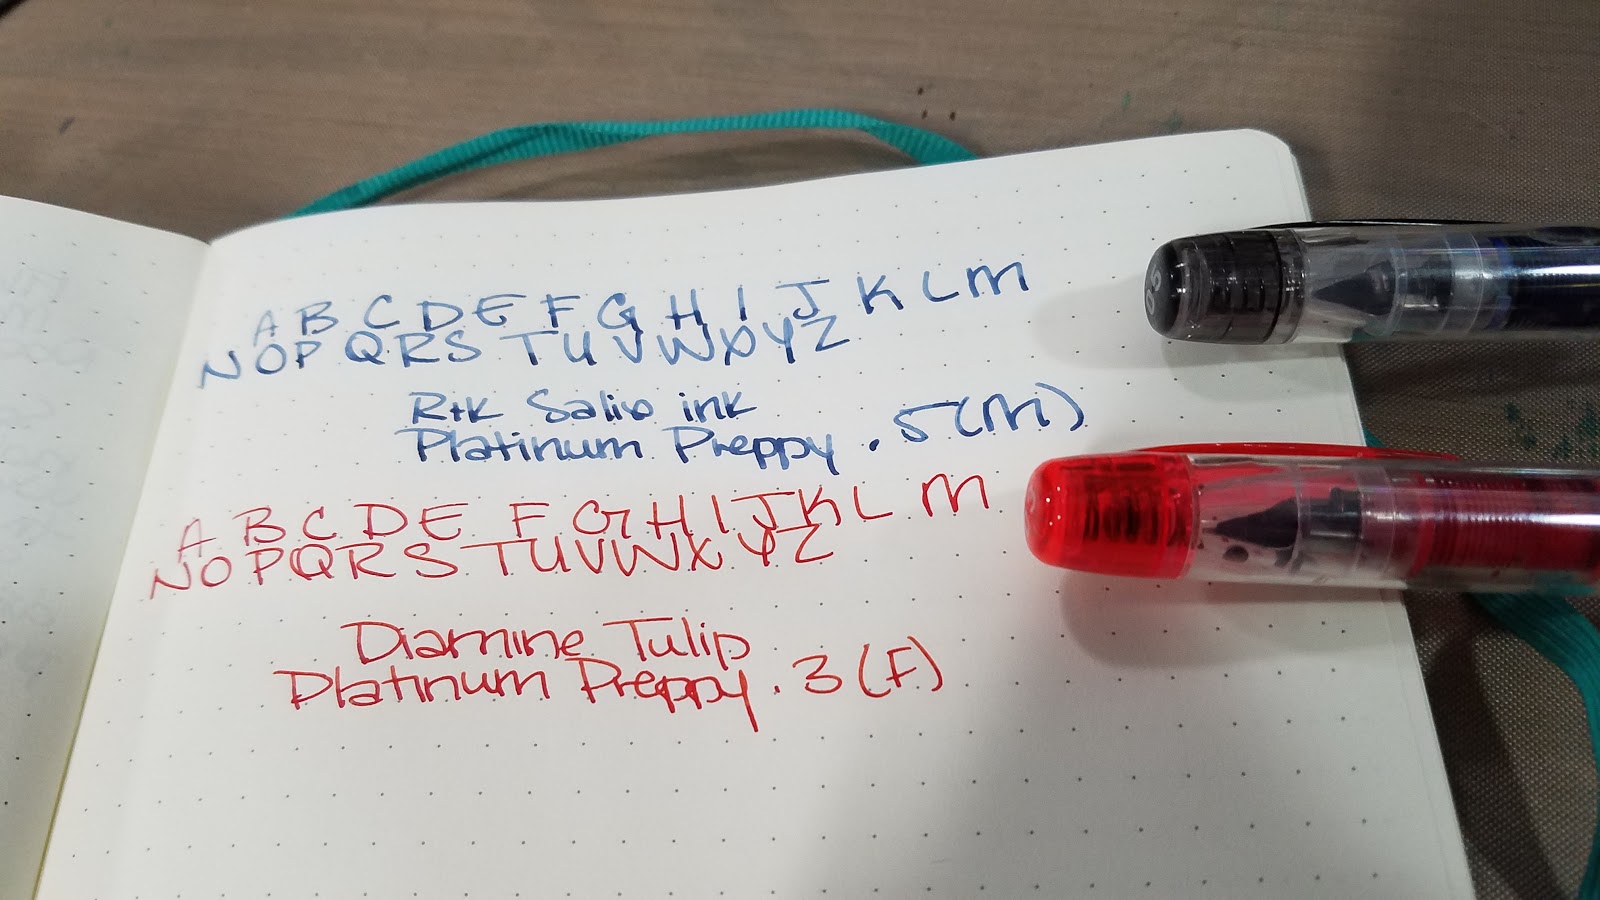 A B C D E F G H I J K L M
N O P Q R S T U V W X Y Z
R+K Salix ink
Platinum Preppy .5 (M)
A B C D E F G H I J K L M
N O P Q R S T U V W X Y Z
Diamine Tulip
Platinum Preppy .3 (F)
05